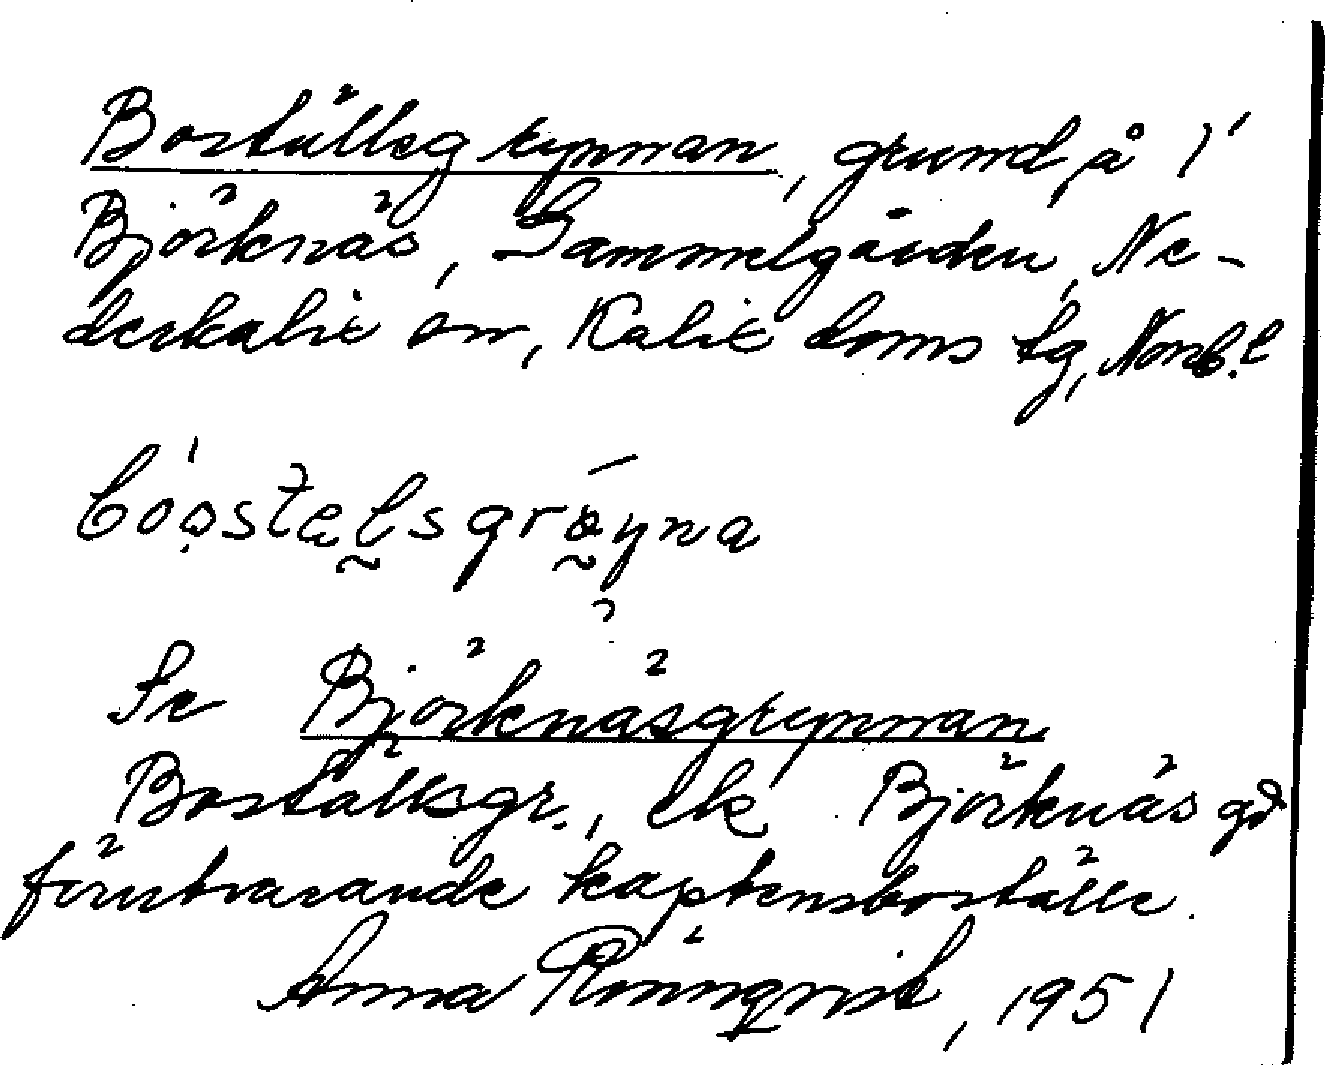 Boställsgrynnan, grund på 1'
Björknäs, Gammelgården, Ne-
derkalix sn, Kalix doms tg, Norrb. l
bóostelsgrøyna
Se Björknäsgrynnan
Boställsgr., Björknäs gd
förutvarande kaptensboställe.
Anna Rönnqvist, 1951